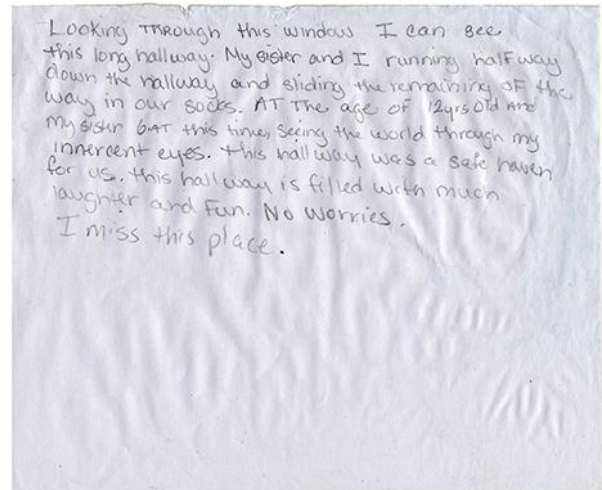 Looking THROUGH this window I can see
this long hallway. My sister and I running half way
down the hallway and sliding the remaining OF the
way in our socks. AT The age of 12yrs old And
my sister 6 AT this time, seeing the world through my
innercent eyes. this hallway was a safe haven
for us. this hallway is filled with much
laughter and Fun. No worries.
I miss this place.